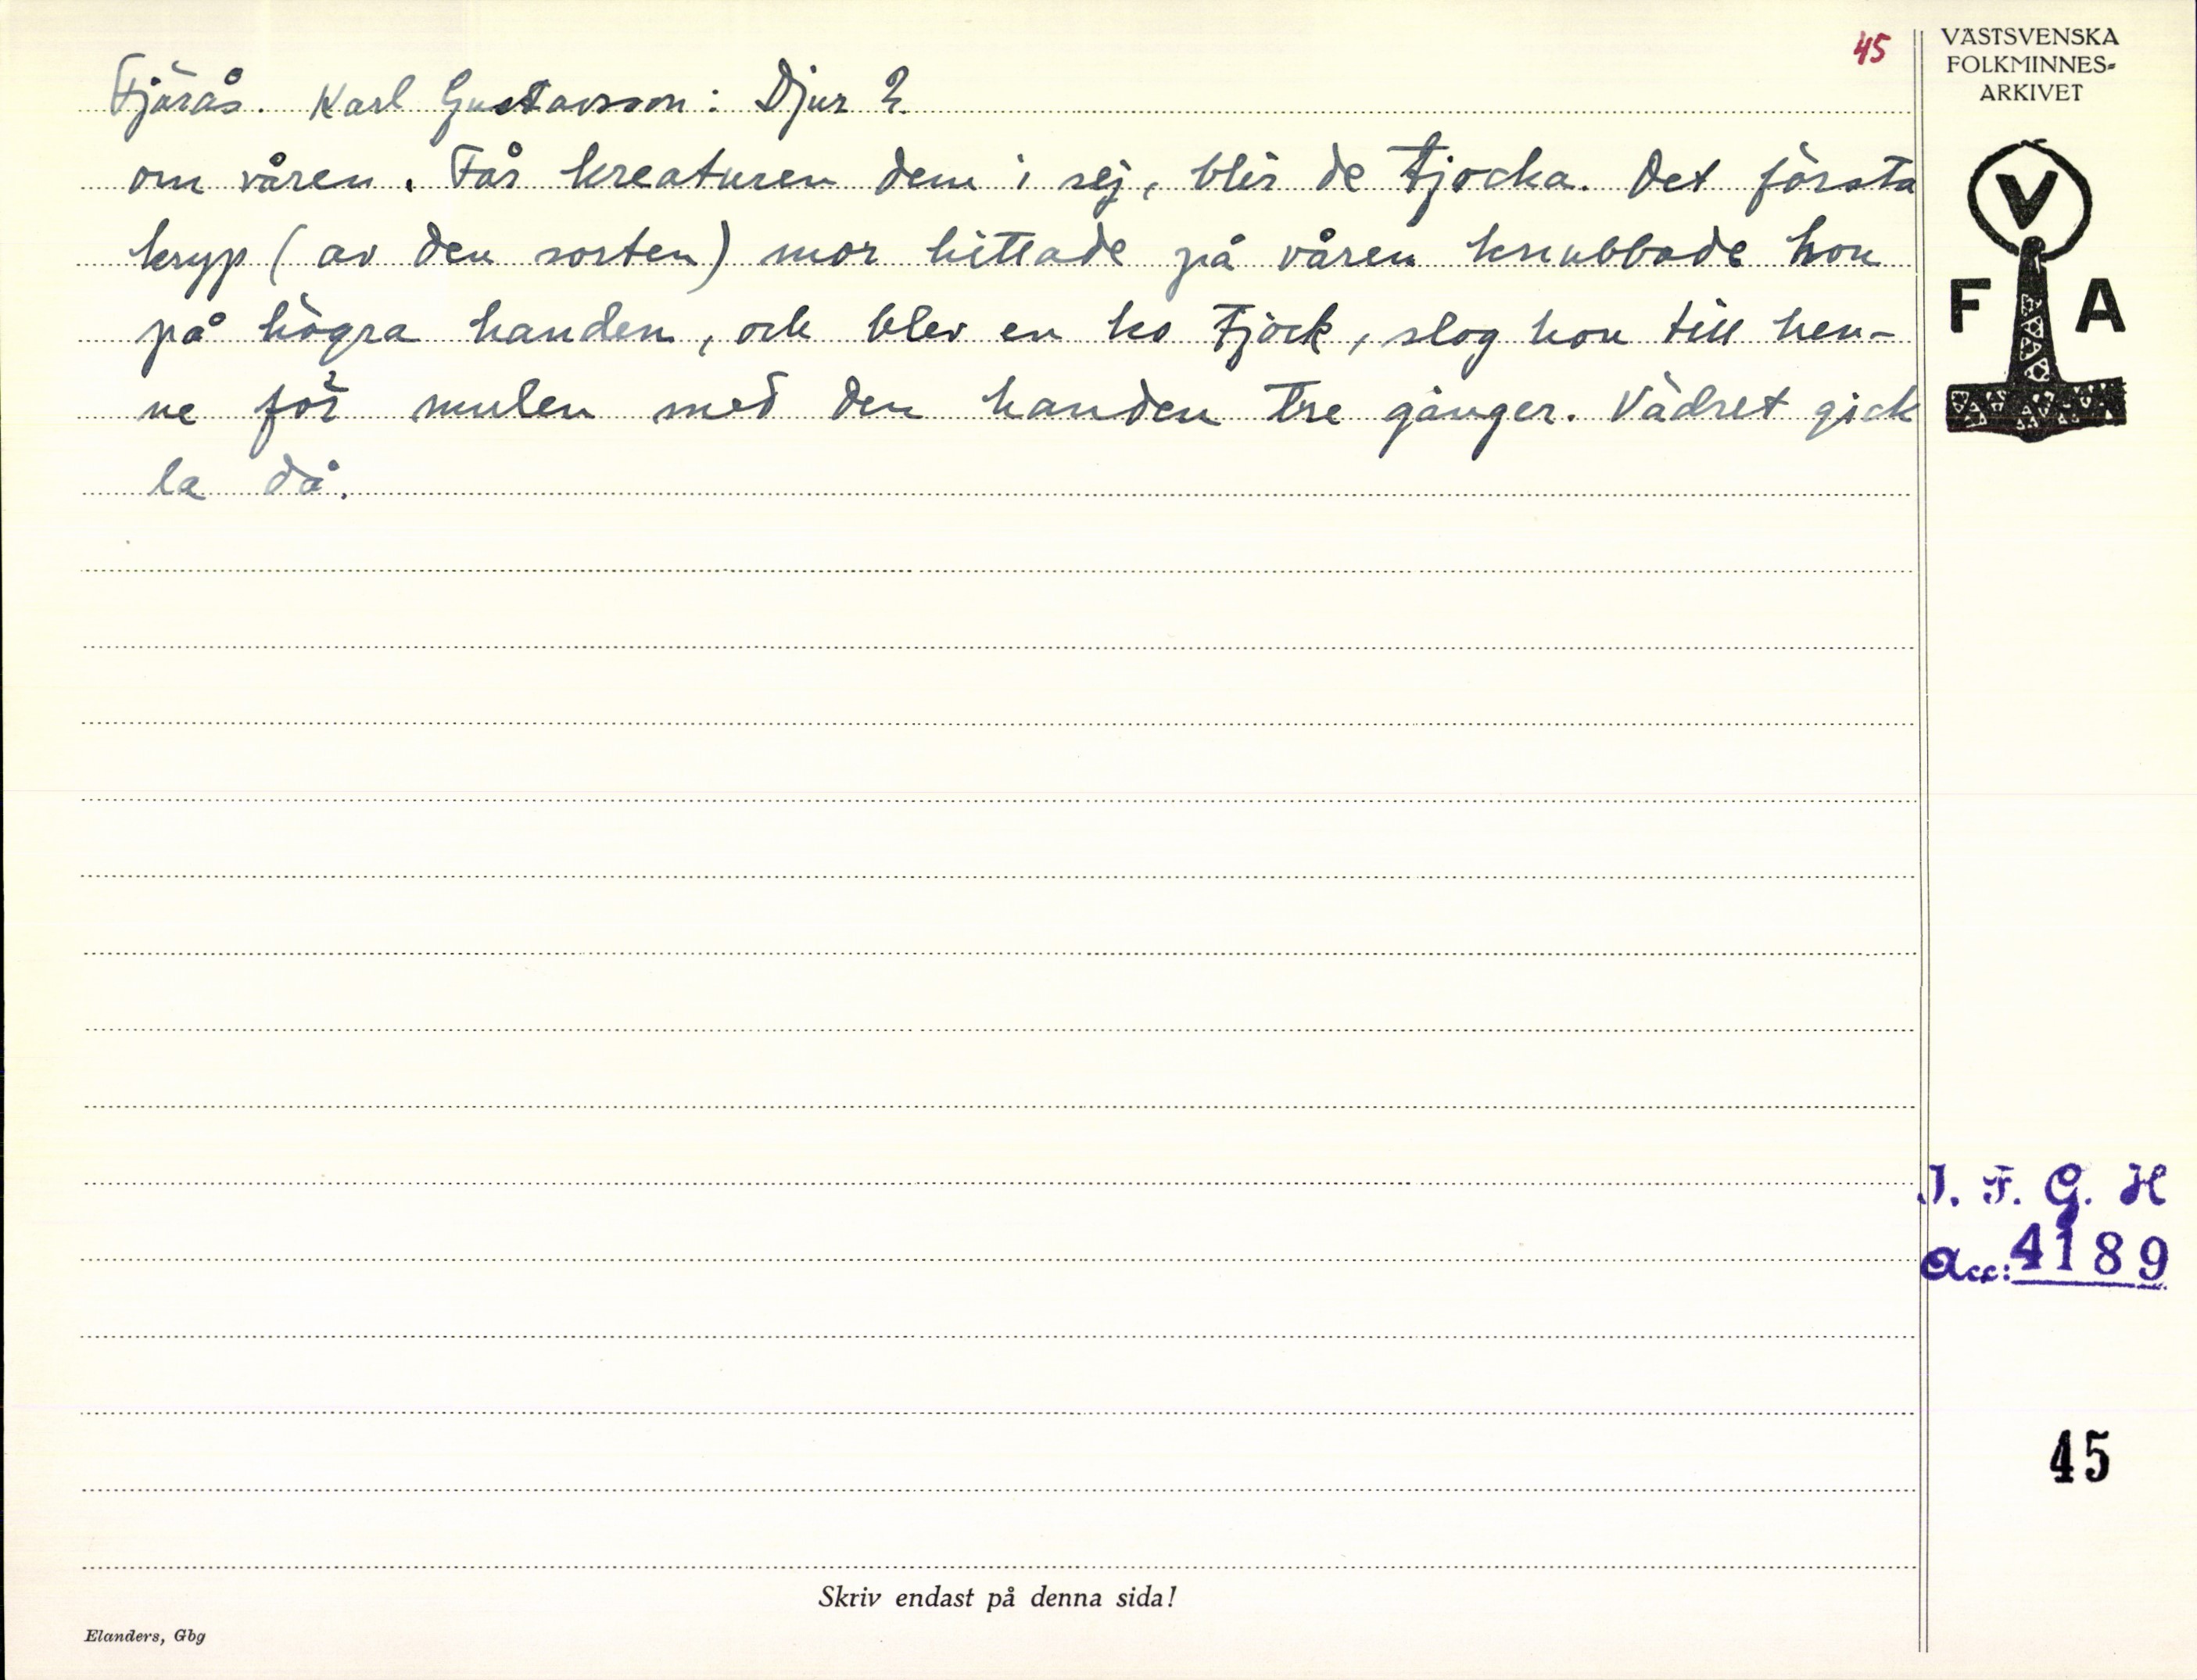 45
Fjärås. Karl Gustavsson: Djur 2.
om våren. Får kreaturen dem i sej, blir de tjocka. Det första
kryp (av den sorten) mor hittade på våren knubbade hon
på högra handen, och blev en ko tjock, slog hon till hen-
ne för mulen med den handen tre gånger. Vädret gick
la då.
VÄSTSVENSKA
FOLKMINNES-
ARKIVET
V
F A
I. F. G. H
Acc: 4189
45
Skriv endast på denna sida!
Elanders, Gbg